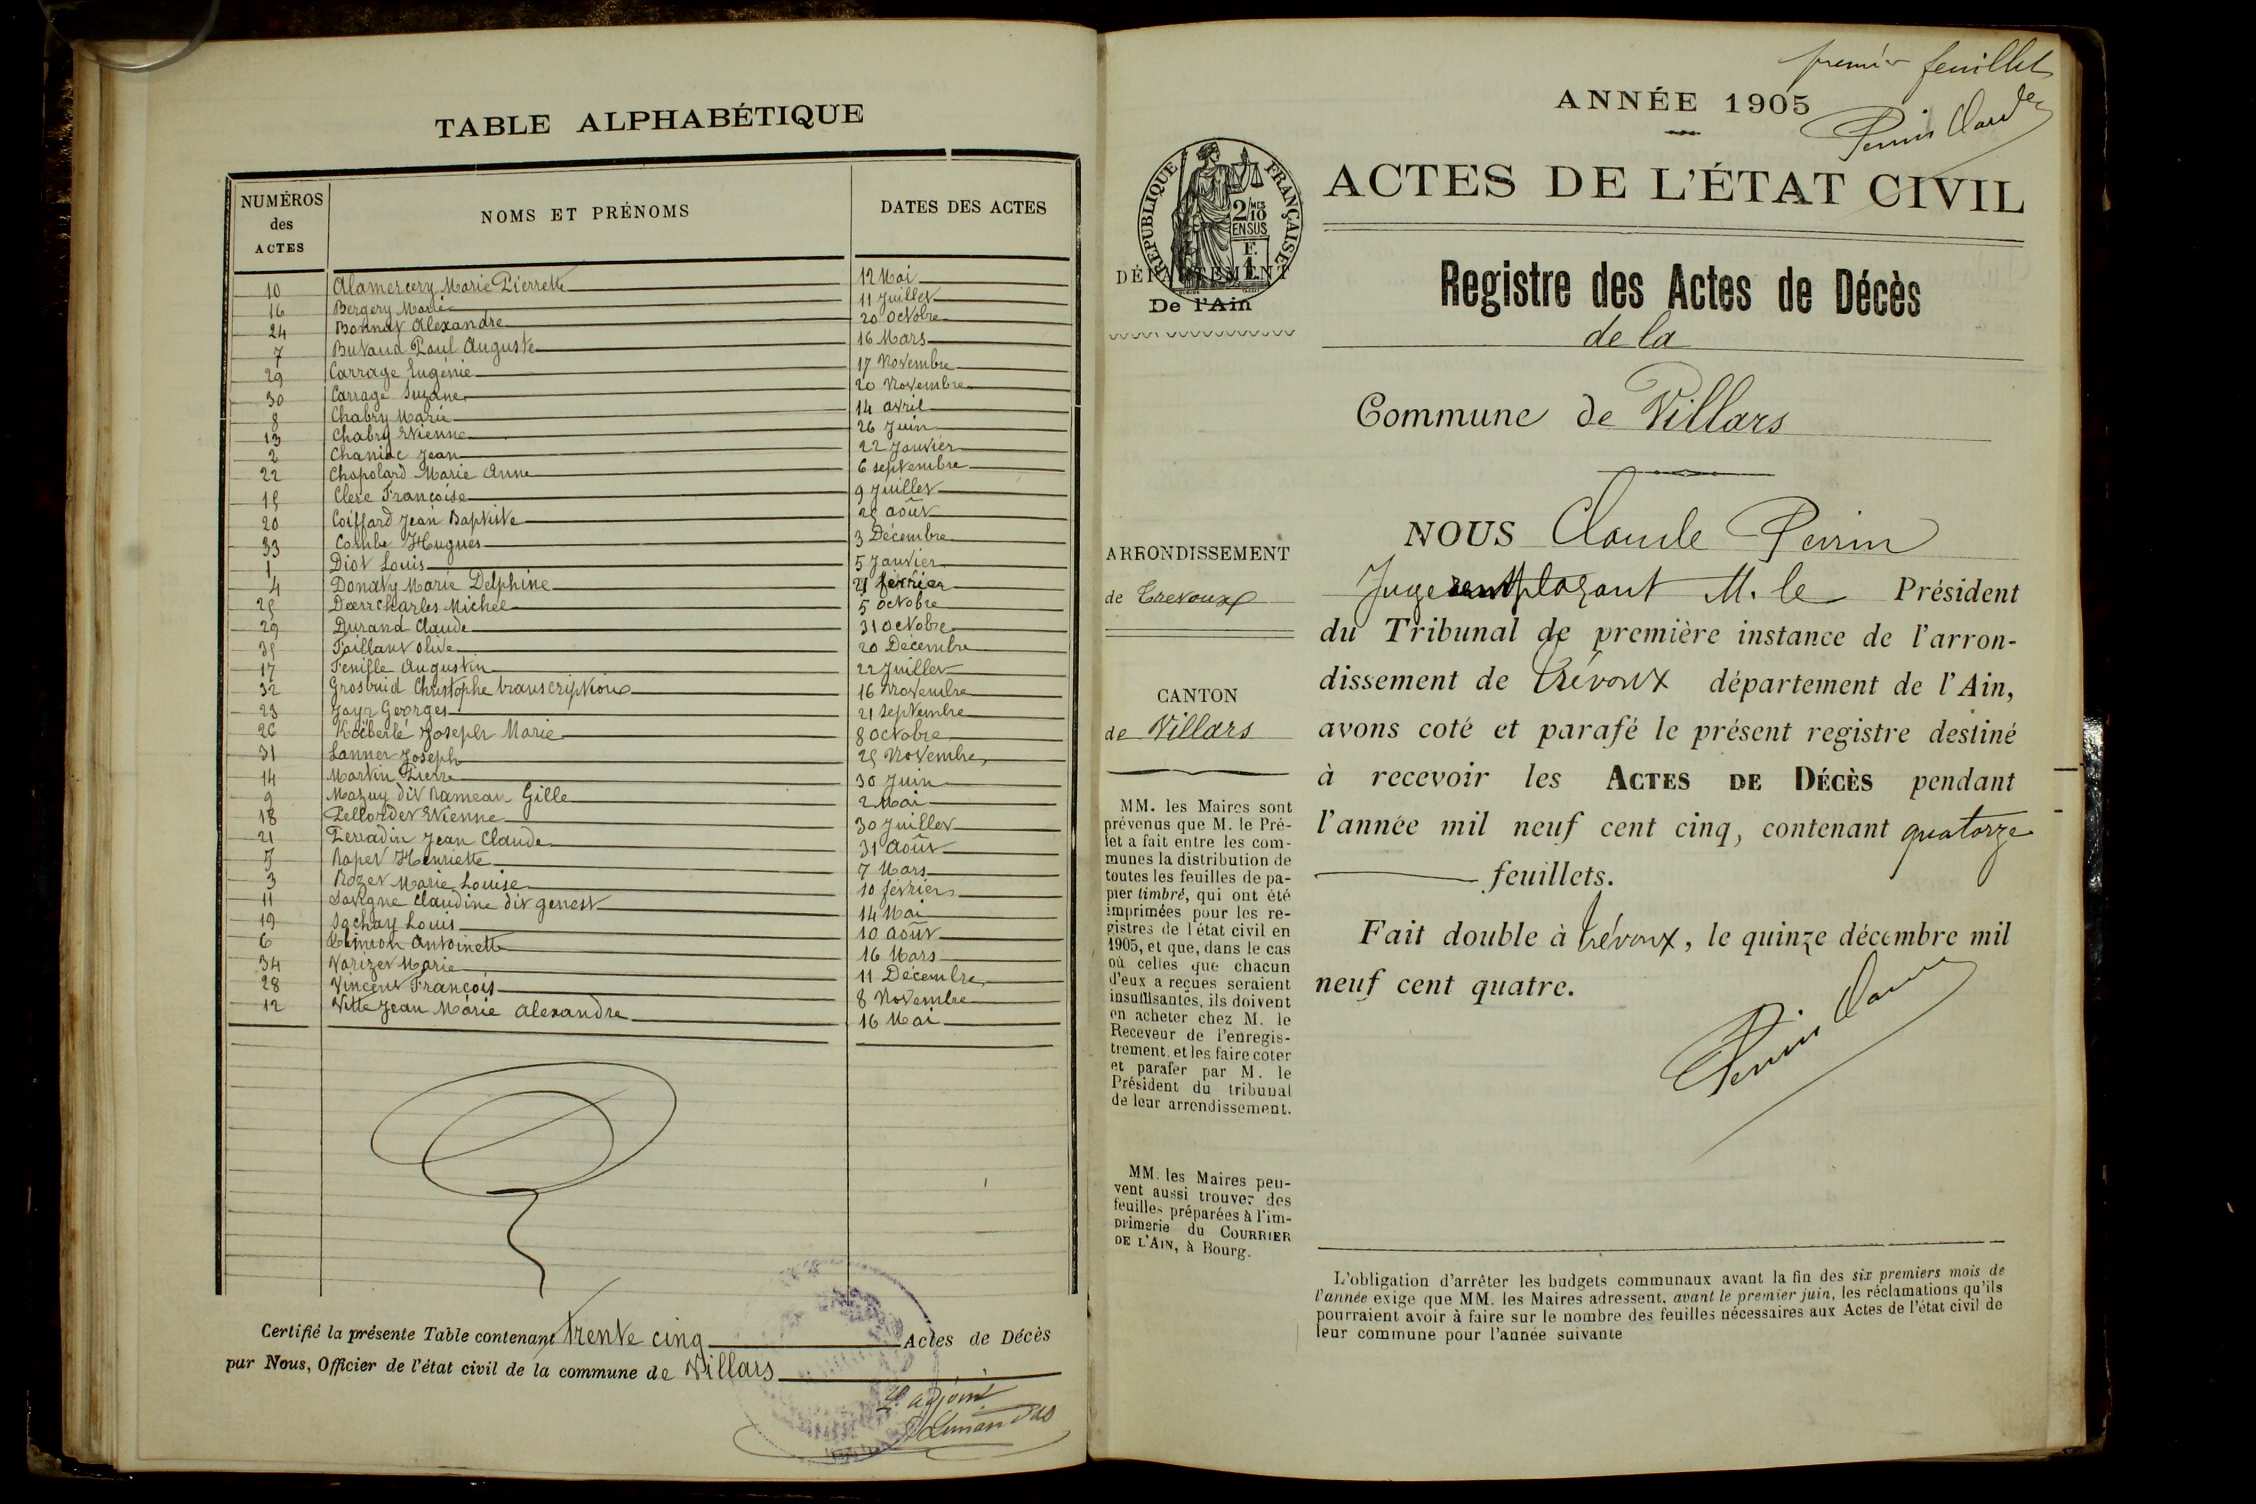 TABLE ALPHABÉTIQUE
NUMÉROS des ACTES NOMS ET PRÉNOMS DATES DES ACTES
10 Alamercery Marie Pierrette 12 Mai
16 Bergery Marie 11 Juillet
24 Bonnat Alexandre 20 Octobre
7 Butaud Paul Auguste 16 Mars
29 Carrage Eugénie 17 Novembre
30 Carrage Suzane 20 Novembre
8 Chabry Marie 14 avril
13 Chabry Etienne 26 Juin
2 Chaniac Jean 22 Janvier
22 Chapolard Marie Anne 6 septembre
15 Clerc Françoise 9 Juillet
20 Coiffard Jean Baptiste 25 août
33 Combe Hugues 3 Décembre
1 Diot Louis 5 Janvier
4 Donaty Marie Delphine 21 février
25 Dœrr Charles Michel 5 octobre
29 Durand Claude 31 octobre
35 Faillant Olive 20 Décembre
17 Fenille Augustin 22 Juillet
32 Christophe transcription 16 Novembre
23 Jayr Georges 21 septembre
26 Kœberlé Joseph Marie 8 octobre
31 Lanner Joseph 25 Novembre
14 Martin Pierre 30 Juin
9 Mazuy dit Rameau Gille 2 Mai
18 Pellordet Etienne 30 Juillet
21 Jean Claude 31 août
5 Rapet Henriette 7 Mars
3 Rozet Marie Louise 10 février
11 Savigne Claudine dit genest 14 Mai
19 Sochay Louis 10 août
6 Antoinette 16 Mars
34 Varizet Marie 11 Décembre
28 Vincent François 8 Novembre
12 Vitte Jean Marie alexandre 16 Mai
Certifié la présente Table contenant trente cinq Actes de Décès
par Nous, Officier de l'état civil de la commune de Villars
L'adjoint
premier feuillet
Perrin Claude
ANNÉE 1905
ACTES DE L'ÉTAT CIVIL
RÉPUBLIQUE FRANÇAISE
2/10MES
EN SUS
F.
1.
DÉPARTEMENT
De l'Ain
Registre des Actes de Décès
de la
Commune de Villars
ARRONDISSEMENT
de Trevoux
CANTON
de Villars
MM. les Maires sont
prévenus que M. le Pré-
fet a fait entre les com-
munes la distribution de
toutes les feuilles de pa-
pier timbré, qui ont été
imprimées pour les re-
gistres de l'état civil en
1905, et que, dans le cas
où celles que chacun
d'eux a reçues seraient
insuffisantes, ils doivent
en acheter chez M. le
Receveur de l'enregis-
trement, et les faire coter
et parafer par M. le
Président du tribunal
de leur arrondissement.
MM. les Maires peu-
vent aussi trouver des
feuilles préparées à l'im-
primerie du COURRIER
DE L'AIN, à Bourg.
NOUS Claude Perrin
Juge remplaçant M. le Président
du Tribunal de première instance de l'arron-
dissement de Trévoux département de l'Ain,
avons coté et parafé le présent registre destiné
à recevoir les ACTES DE DÉCÈS pendant
l'année mil neuf cent cinq, contenant quatorze
feuillets.
Fait double à Trévoux, le quinze décembre mil
neuf cent quatre.
Perrin Claude
L'obligation d'arrêter les budgets communaux avant la fin des six premiers mois de
l'année exige que MM. les Maires adressent, avant le premier juin, les réclamations qu'ils
pourraient avoir à faire sur le nombre des feuilles nécessaires aux Actes de l'état civil de
leur commune pour l'année suivante